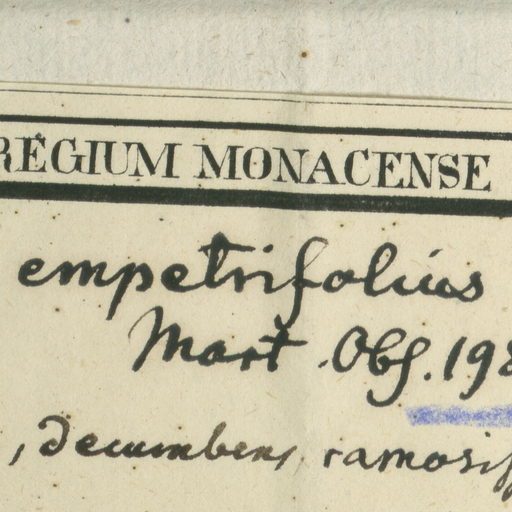 REGIUM MONACENSE
empetrifolius
Mart. Obs. 198
, decumbens, ramosiss